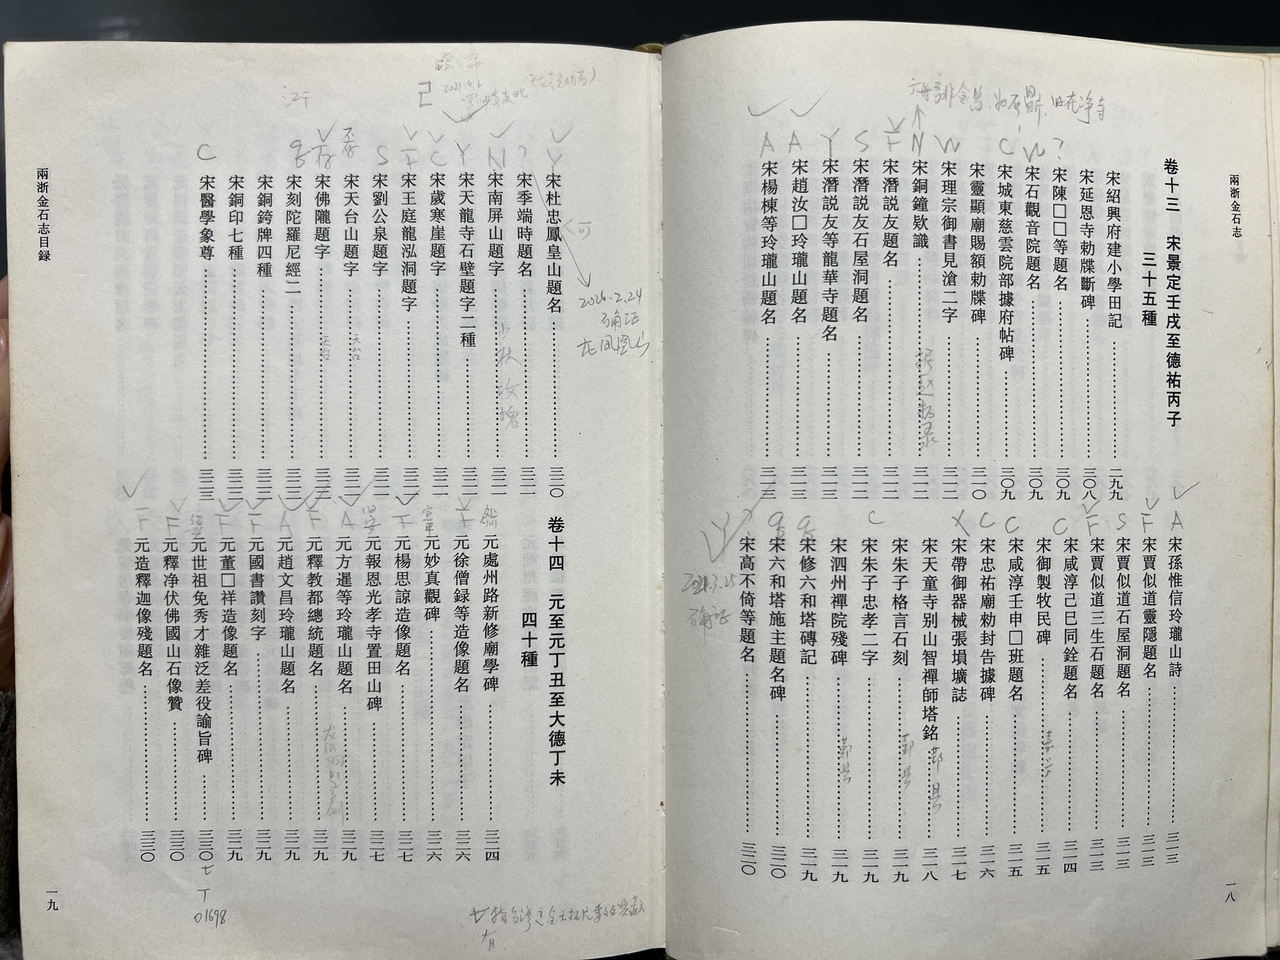 兩浙金石志
卷十三　宋景定壬戌至德祐丙子
三十五種
宋紹興府建小學田記……二九九
宋延恩寺勅牒斷碑……三〇八
宋陳□□等題名……三〇九
宋石觀音院題名……三〇九
宋城東慈雲院部據府帖碑……三〇九
宋靈顯廟賜額勅牒碑……三一〇
宋理宗御書見滄二字……三一二
宋銅鐘欵識……三一二
宋潛説友題名……三一二
宋潛説友石屋洞題名……三一二
宋潛説友等龍華寺題名……三一三
宋趙汝□玲瓏山題名……三一三
宋楊棟等玲瓏山題名……三一三
宋孫惟信玲瓏山詩……三一三
宋賈似道靈隱題名……三一三
宋賈似道石屋洞題名……三一三
宋賈似道三生石題名……三一三
宋咸淳己巳同銓題名……三一四
宋御製牧民碑……三一五
宋咸淳壬申□班題名……三一五
宋忠祐廟勅封告據碑……三一六
宋帶御器械張塤壙誌……三一七
宋天童寺别山智禪師塔銘……三一八
鄞县
宋朱子格言石刻……三一九
鄞县
宋朱子忠孝二字……三一九
宋泗州禪院殘碑……三一九
鄞县
宋修六和塔磚記……三一九
宋六和塔施主題名碑……三二〇
宋高不倚等題名……三二〇
一八
宋杜忠鳳皇山題名……三二〇
宋季端時題名……三二一
宋南屏山題字……三二一
宋天龍寺石壁題字二種……三二一
宋歲寒崖題字……三二一
宋王庭龍泓洞題字……三二一
宋劉公泉題字……三二一
宋天台山題字……三二一
天台
宋佛隴題字……三二二
天台
宋刻陀羅尼經二……三二二
宋銅銙牌四種……三二二
宋銅印七種……三二二
宋醫學象尊……三二三
卷十四　元至元丁丑至大德丁未
四十種
元處州路新修廟學碑……三二四
元徐僧録等造像題名……三二六
元妙真觀碑……三二六
元楊思諒造像題名……三二七
元報恩光孝寺置田山碑……三二七
元方暹等玲瓏山題名……三二九
元釋教都總統題名……三二九
元趙文昌玲瓏山題名……三二九
元國書讚刻字……三二九
元董□祥造像題名……三二九
元世祖免秀才雜泛差役諭旨碑……三三〇
元釋净伏佛國山石像贊……三三〇
元造釋迦像殘題名……三三〇
兩浙金石志目録
一九
2026.2.24
确证
在凤凰山
01698